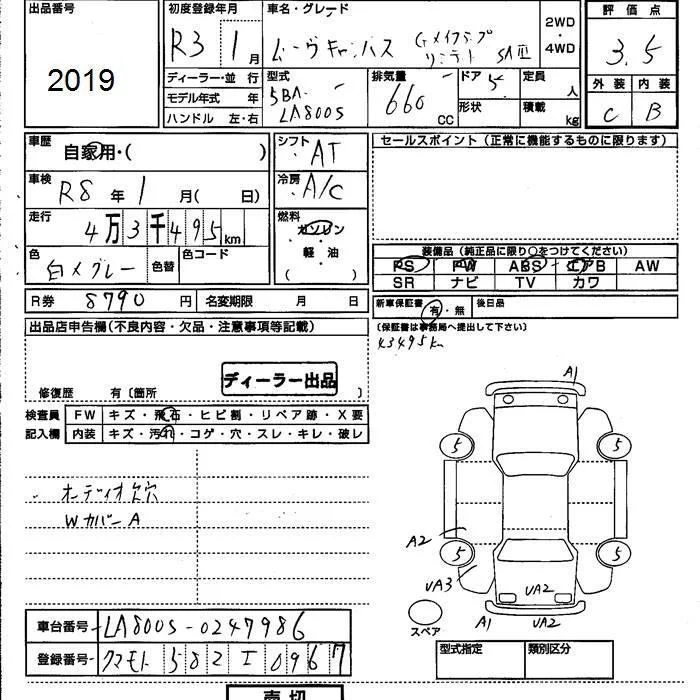 出品番号
2019
初度登録年月
R3 1月
車名・グレード
ムーヴキャンバス Gメイクアップ
リミテッド SAⅢ
2WD
・
4WD
評価点
3.5
外装 内装
C B
ディーラー・並 行
モデル年式 年
ハンドル 左・右
型式
5BA-
LA800S
排気量
660 CC
ドア 5
形状
定員 人
積載 kg
車歴
自家用・( )
車検
R8年1月( 日)
走行
4万3千495km
色
白×グレー
色替
色コード
シフト
AT
冷房
A/C
燃料
ガソリン
・
軽・油
( )
セールスポイント(正常に機能するものに限ります)
装備品(純正品に限り○をつけてください)
PS PW ABS エアB AW
SR ナビ TV カワ
R券 8790円 名変期限 月 日
新車保証書 有・無 後日品
(保証書は事務局へ提出して下さい)
43495km
出品店申告欄(不良内容・欠品・注意事項等記載)
ディーラー出品
修復歴 有〔箇所 〕
検査員 FW キズ・飛石・ヒビ割・リペア跡・X要
記入欄 内装 キズ・汚れ・コゲ・穴・スレ・キレ・破レ
オーディオ欠穴
WカバーA
A1
5 5
A2
5 5
UA3
UA2
A1 UA2
スペア
車台番号 LA800S-0247986
登録番号 クマモト 582 エ 0967
型式指定 類別区分
売切